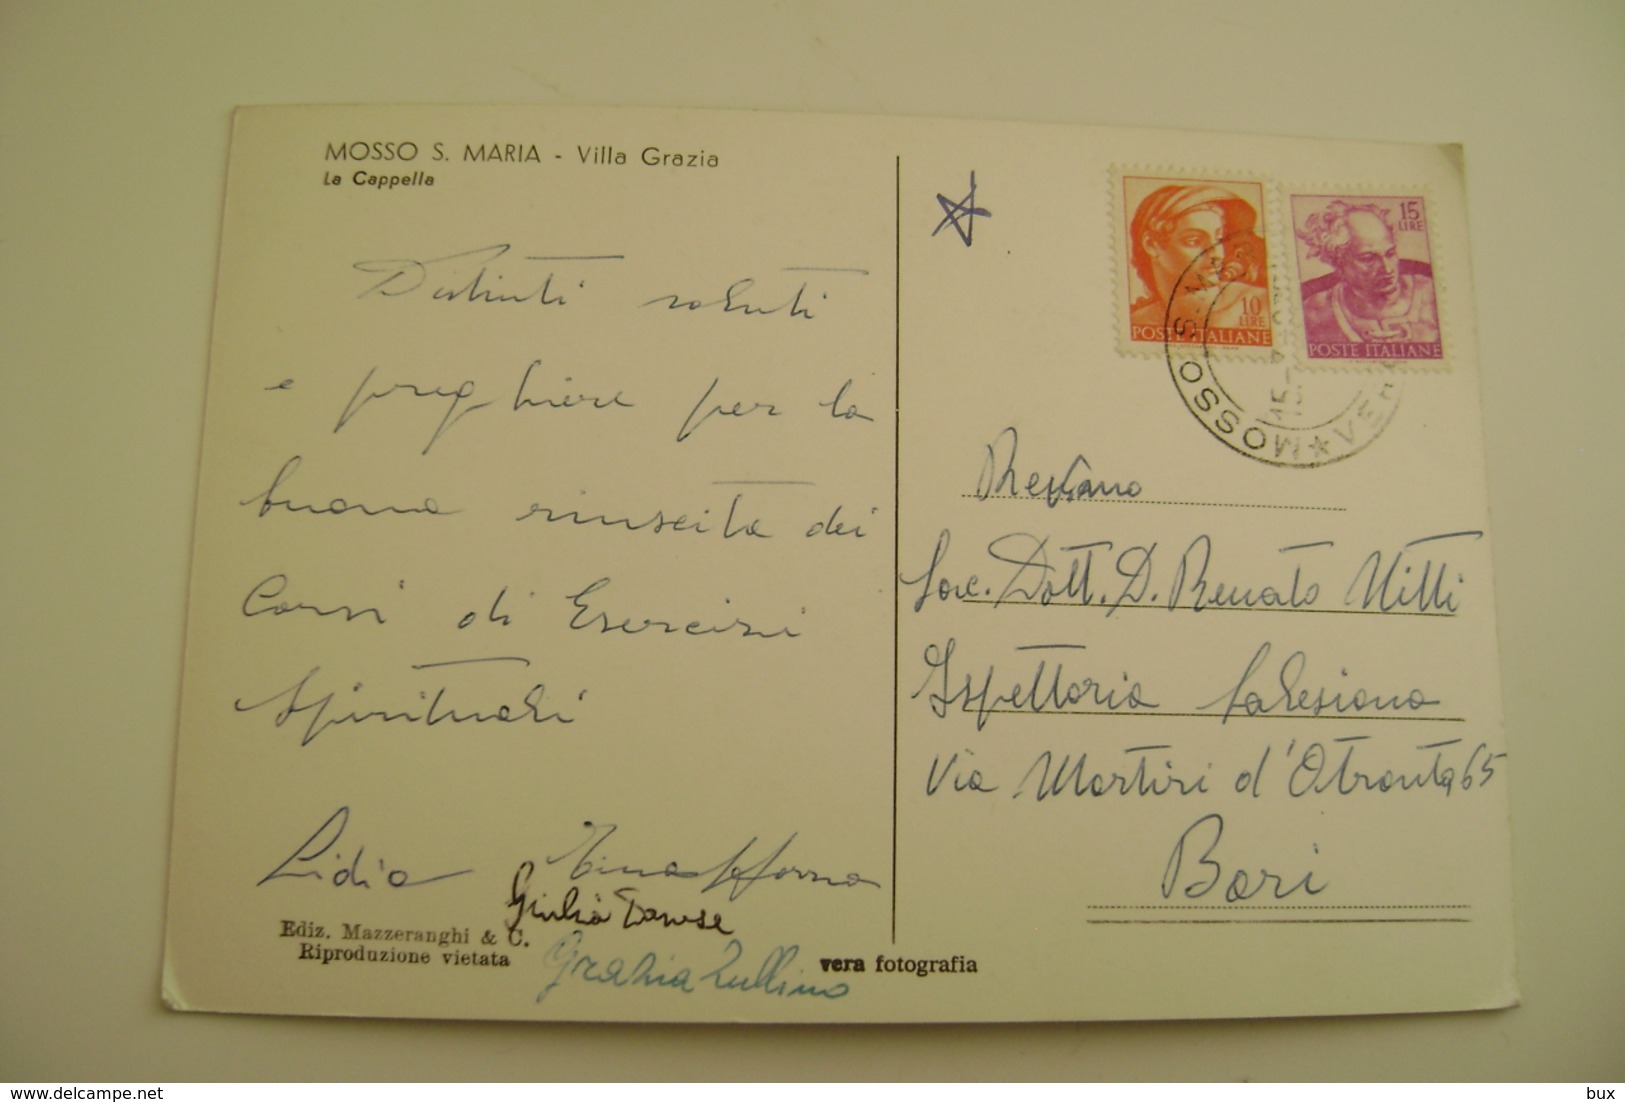 MOSSO S. MARIA - Villa Grazia
La Cappella
Distinti saluti
e preghiere per la
buona riuscita dei
Corsi di Esercizi
Spirituali
Lidia
Giulia
Grazia Zullino
Ediz. Mazzeranghi & C.
Riproduzione vietata
vera fotografia
10
LIRE
POSTE ITALIANE
15
LIRE
POSTE ITALIANE
MOSSO S.
Sac. Dott. D. Renato Nitti
Ispettoria Salesiana
Via Martiri d'Otranto 65
Bari
delcampe.net
bux